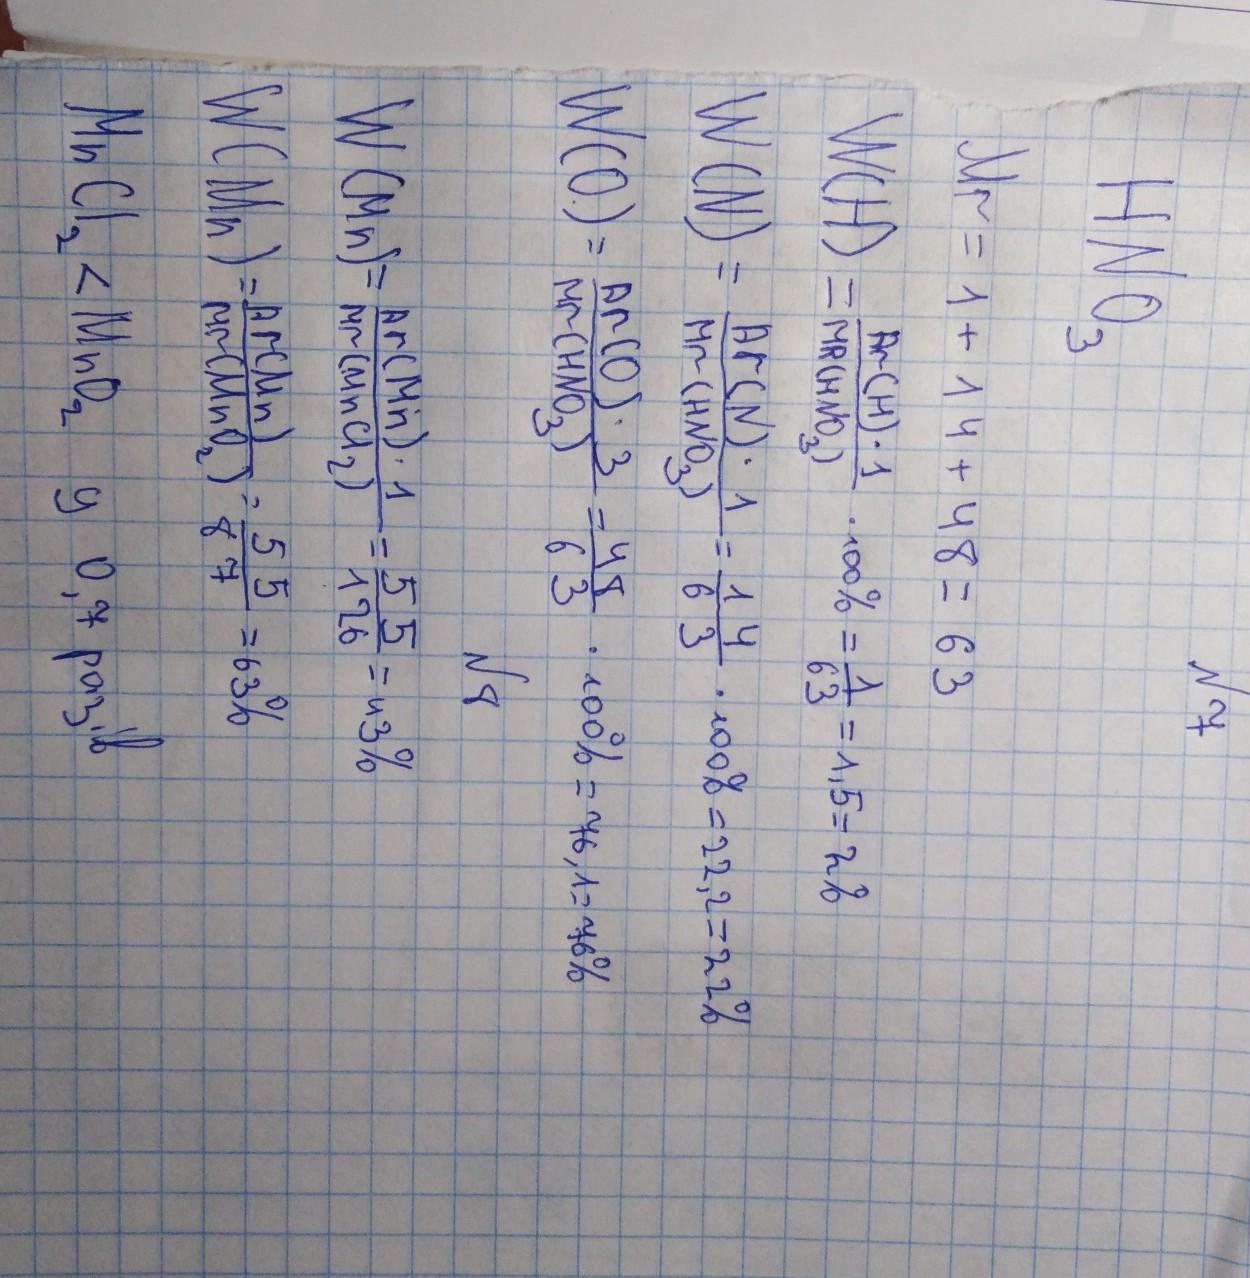 N7
HNO3
Mr = 1 + 14 + 48 = 63
W(H) = Ar(H)·1/MR(HNO3) · 100% = 1/63 = 1,5 = 2%
W(N) = Ar(N)·1/Mr(HNO3) = 14/63 · 100% = 22,2 = 22%
W(O) = Ar(O)·3/Mr(HNO3) = 48/63 · 100% = 76,1 = 76%
N8
W(Mn) = Ar(Mn)·1/Mr(MnCl2) = 55/126 = 43%
W(Mn) = Ar(Mn)/Mr(MnO2) = 55/87 = 63%
MnCl2 < MnO2 у 0,7 разів